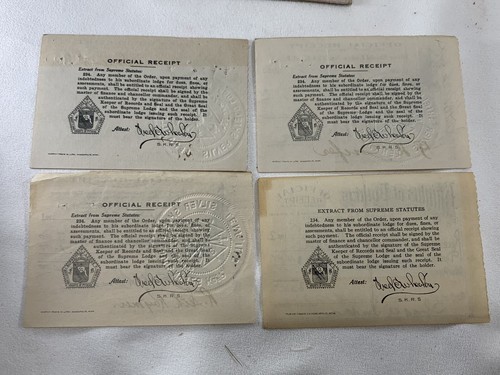 OFFICIAL RECEIPT
Extract from Supreme Statutes
234. Any member of the Order, upon payment of any
indebtedness to his subordinate lodge for dues, fines, or
assessments, shall be entitled to an official receipt showing
such payment. The official receipt shall be signed by the
master of finance and chancellor commander, and shall be
authenticated by the signature of the Supreme
Keeper of Records and Seal and the Great Seal
of the Supreme Lodge and the seal of the
subordinate lodge issuing such receipt. It
must bear the signature of the holder.
Attest:
S.K.R.S.
OFFICIAL RECEIPT
Extract from Supreme Statutes
234. Any member of the Order, upon payment of any
indebtedness to his subordinate lodge for dues, fines, or
assessments, shall be entitled to an official receipt showing
such payment. The official receipt shall be signed by the
master of finance and chancellor commander, and shall be
authenticated by the signature of the Supreme
Keeper of Records and Seal and the Great Seal
of the Supreme Lodge and the seal of the
subordinate lodge issuing such receipt. It
must bear the signature of the holder.
Attest:
S.K.R.S.
OFFICIAL RECEIPT
Extract from Supreme Statutes
234. Any member of the Order, upon payment of any
indebtedness to his subordinate lodge for dues, fines, or
assessments, shall be entitled to an official receipt showing
such payment. The official receipt shall be signed by the
master of finance and chancellor commander, and shall be
authenticated by the signature of the Supreme
Keeper of Records and Seal and the Great Seal
of the Supreme Lodge and the seal of the
subordinate lodge issuing such receipt. It
must bear the signature of the holder.
Attest:
S.K.R.S.
EXTRACT FROM SUPREME STATUTES
234. Any member of the Order, upon payment of any
indebtedness to his subordinate lodge for dues, fines, or
assessments, shall be entitled to an official receipt showing
such payment. The official receipt shall be signed by the
master of finance and chancellor commander, and shall be
authenticated by the signature of the Supreme
Keeper of Records and Seal and the Great Seal
of the Supreme Lodge and the seal of the
subordinate lodge issuing such receipt. It
must bear the signature of the holder.
Attest:
S.K.R.S.